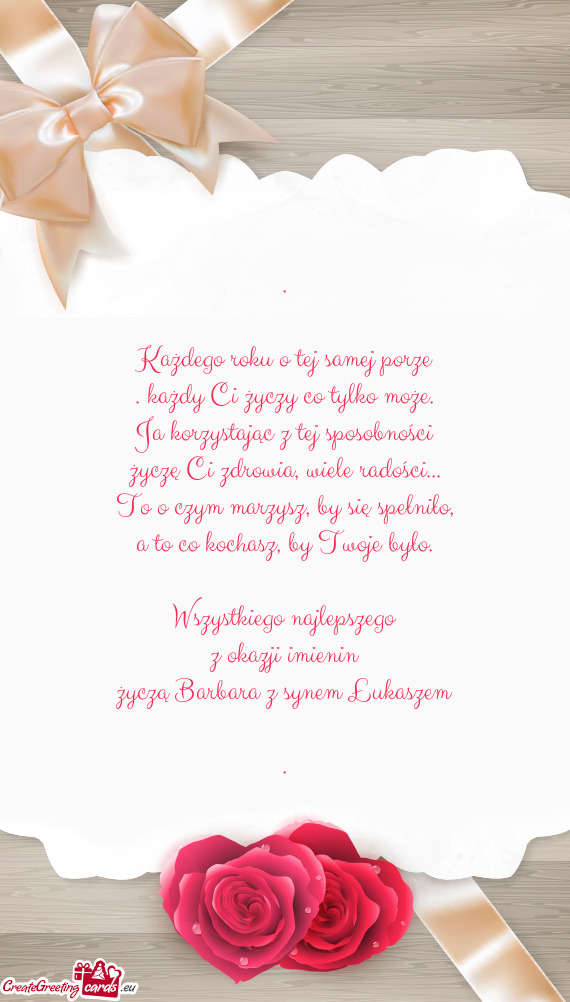 .
Każdego roku o tej samej porze
. każdy Ci życzy co tylko może.
Ja korzystając z tej sposobności
życzę Ci zdrowia, wiele radości...
To o czym marzysz, by się spełniło,
a to co kochasz, by Twoje było.
Wszystkiego najlepszego
z okazji imienin
życzą Barbara z synem Łukaszem
.
CreateGreeting cards .eu